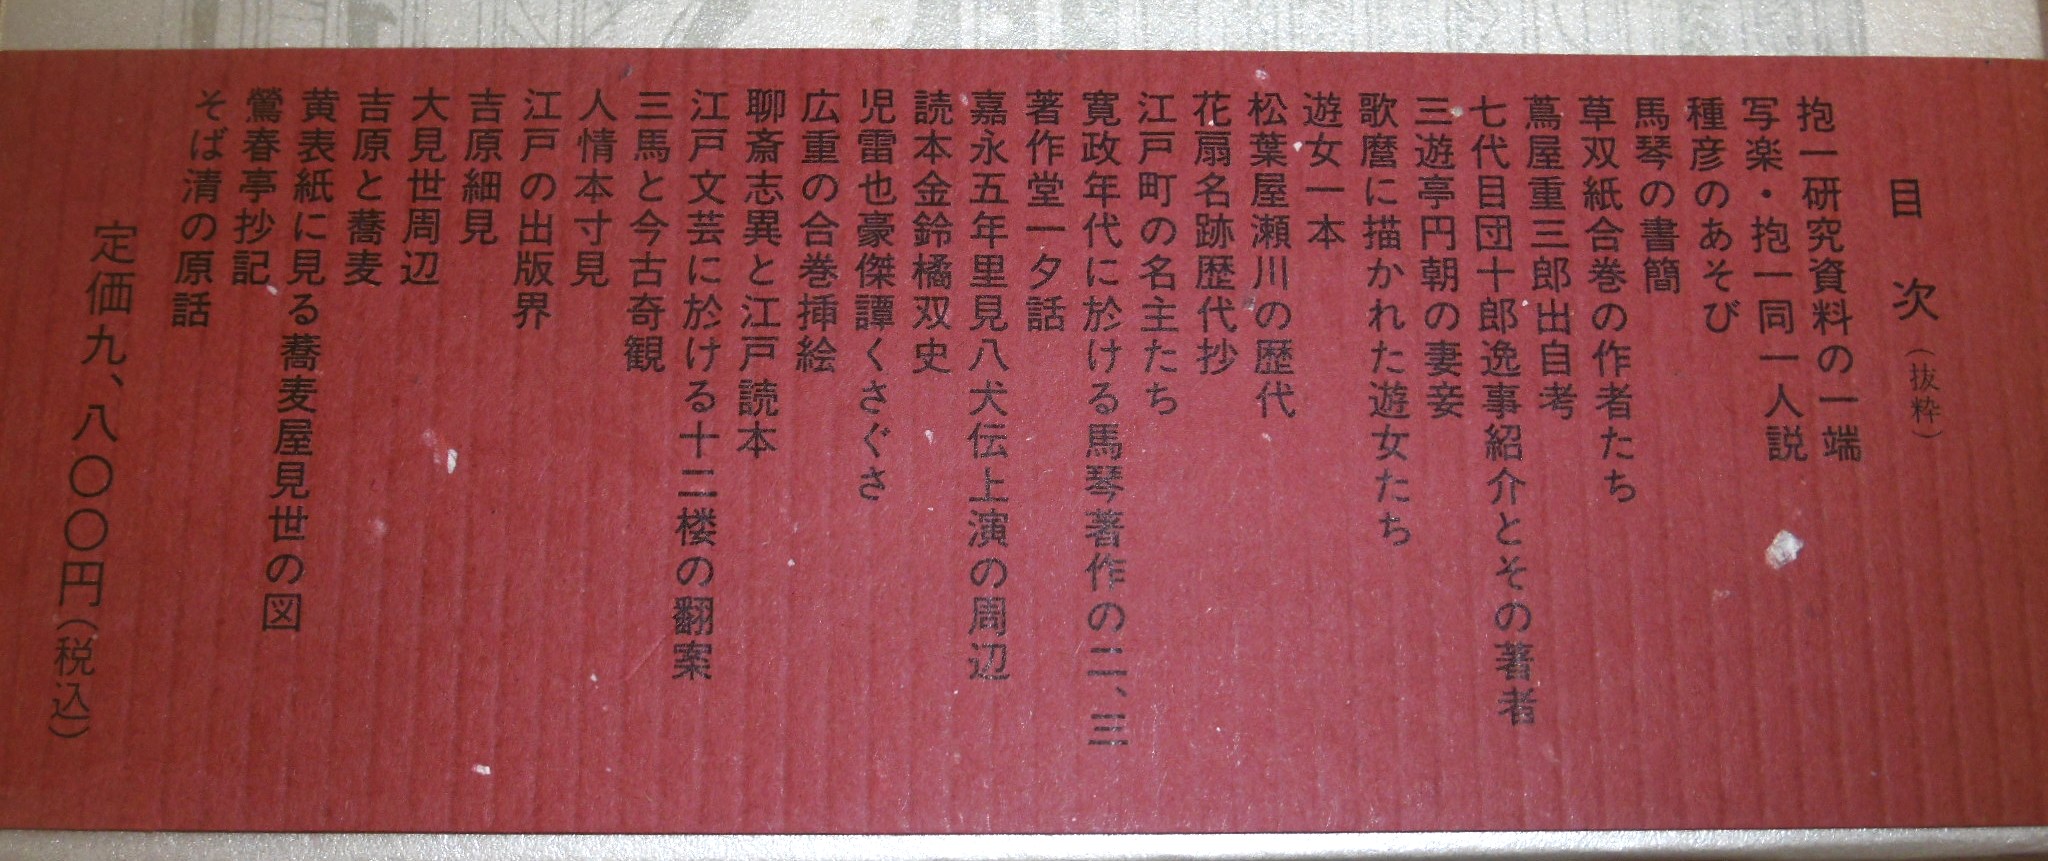 目次(抜粋)
抱一研究資料の一端
写楽・抱一同一人説
種彦のあそび
馬琴の書簡
草双紙合巻の作者たち
蔦屋重三郎出自考
七代目団十郎逸事紹介とその著者
三遊亭円朝の妻妾
歌麿に描かれた遊女たち
遊女一本
松葉屋瀬川の歴代
花扇名跡歴代抄
江戸町の名主たち
寛政年代に於ける馬琴著作の二、三
著作堂一夕話
嘉永五年里見八犬伝上演の周辺
読本金鈴橘双史
児雷也豪傑譚くさぐさ
広重の合巻挿絵
聊斎志異と江戸読本
江戸文芸に於ける十二楼の翻案
三馬と今古奇観
人情本寸見
江戸の出版界
吉原細見
大見世周辺
吉原と蕎麦
黄表紙に見る蕎麦屋見世の図
鶯春亭抄記
そば清の原話
定価九、八〇〇円(税込)